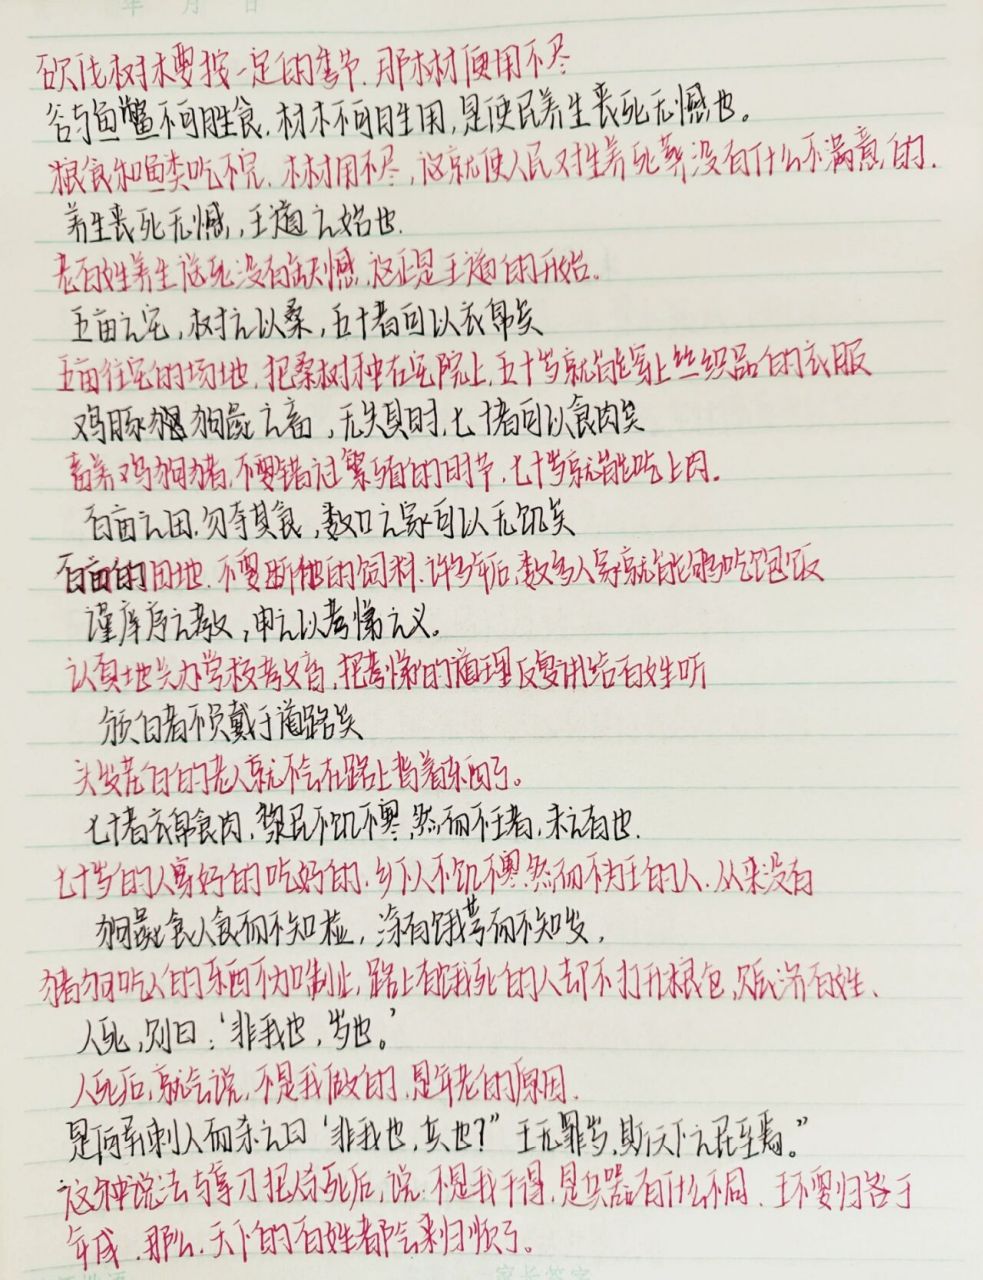 年 月 日
砍伐树木要按一定的季节,那木材便用不尽
谷与鱼鳖不可胜食,材木不可胜用,是使民养生丧死无憾也。
粮食和鱼类吃不完,木材用不尽,这就使人民对生养死葬没有什么不满意的.
养生丧死无憾,王道之始也.
老百姓养生送死没有缺憾,这正是王道的开始.
五亩之宅,树之以桑,五十者可以衣帛矣
五亩住宅的场地,把桑树种在宅院上,五十岁就能穿上丝织品的衣服
鸡豚狗彘之畜,无失其时,七十者可以食肉矣
畜养鸡狗猪,不要错过繁殖的时节,七十岁就能吃上肉.
百亩之田,勿夺其食,数口之家可以无饥矣
百亩的田地,不要断他的饲料,许多年后,数多人家就能够吃饱饭
谨庠序之教,申之以孝悌之义。
认真地兴办学校教育,把孝悌的道理反复讲给百姓听
颁白者不负戴于道路矣
头发花白的老人就不会在路上背着东西了。
七十者衣帛食肉,黎民不饥不寒,然而不王者,未之有也.
七十岁的人穿好的吃好的,乡下人不饥不寒,然而不为王的人,从来没有
狗彘食人食而不知检,涂有饿莩而不知发,
猪狗吃人的东西不加制止,路上有饿死的人却不打开粮仓,赈济百姓、
人死,则曰:'非我也,岁也。'
人死后,就会说,不是我做的,是年老的原因.
是何异于刺人而杀之曰'非我也,兵也?"王无罪岁,斯天下之民至焉。"
这种说法与拿刀把人杀死后,说:不是我干得,是兵器有什么不同,王不要归咎于
年成,那么,天下的百姓都会来归顺了。
家长签字